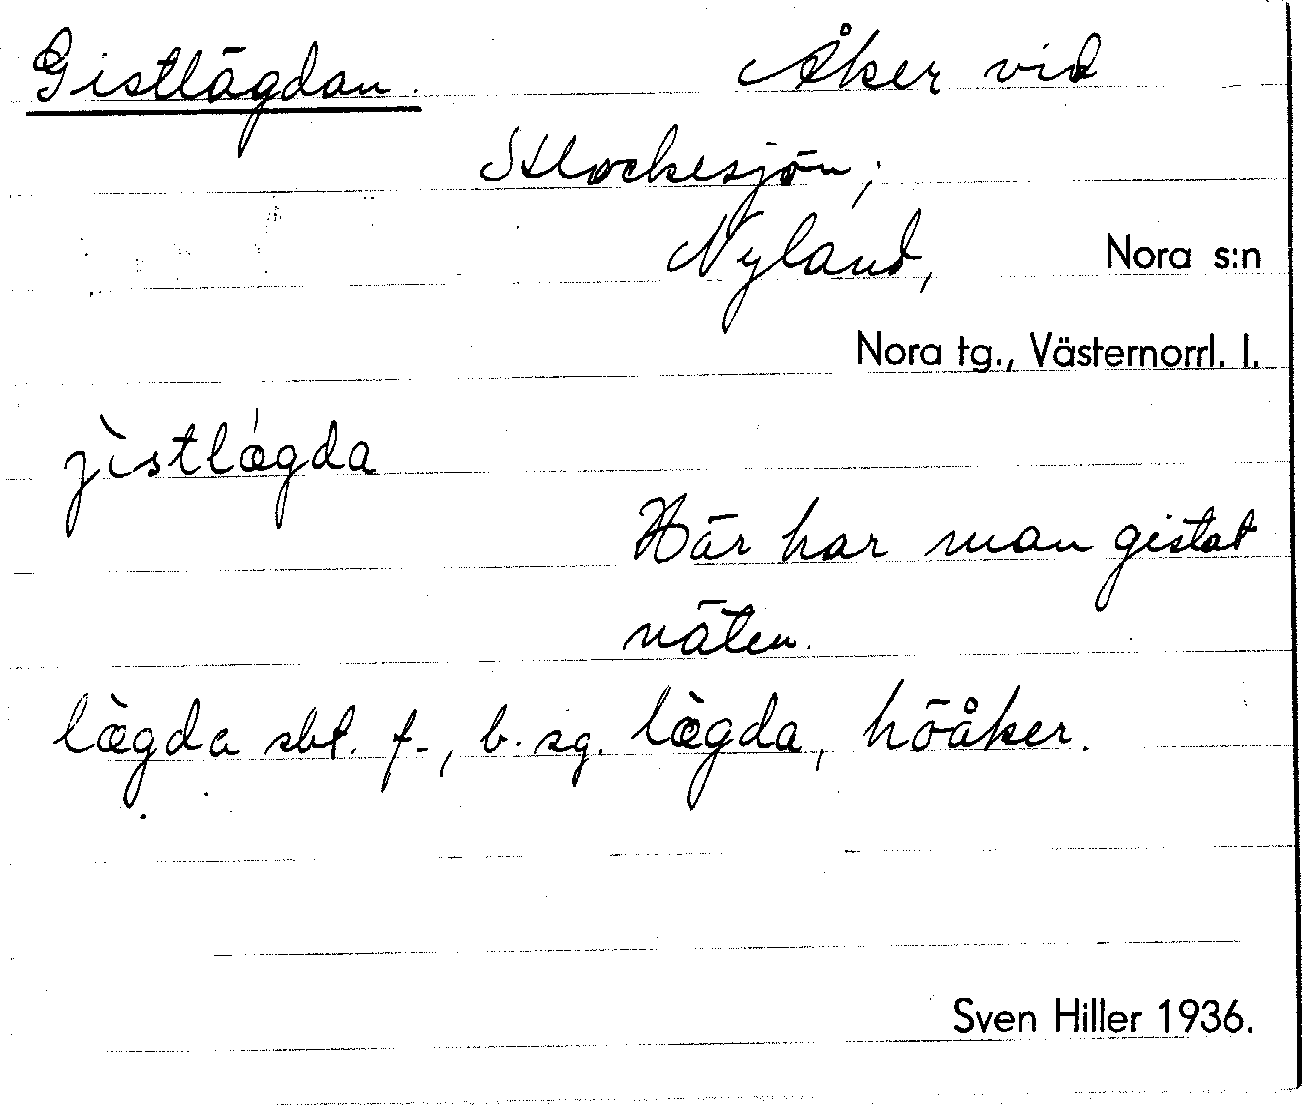 Gistlägdan. Åker vid
Stockesjön;
Nyland, Nora s:n
Nora tg., Västernorrl. l.
jìstlǽgda
Här har man gistat
näten.
lægda sbl. f., b. sg. lægda, höåker.
Sven Hiller 1936.